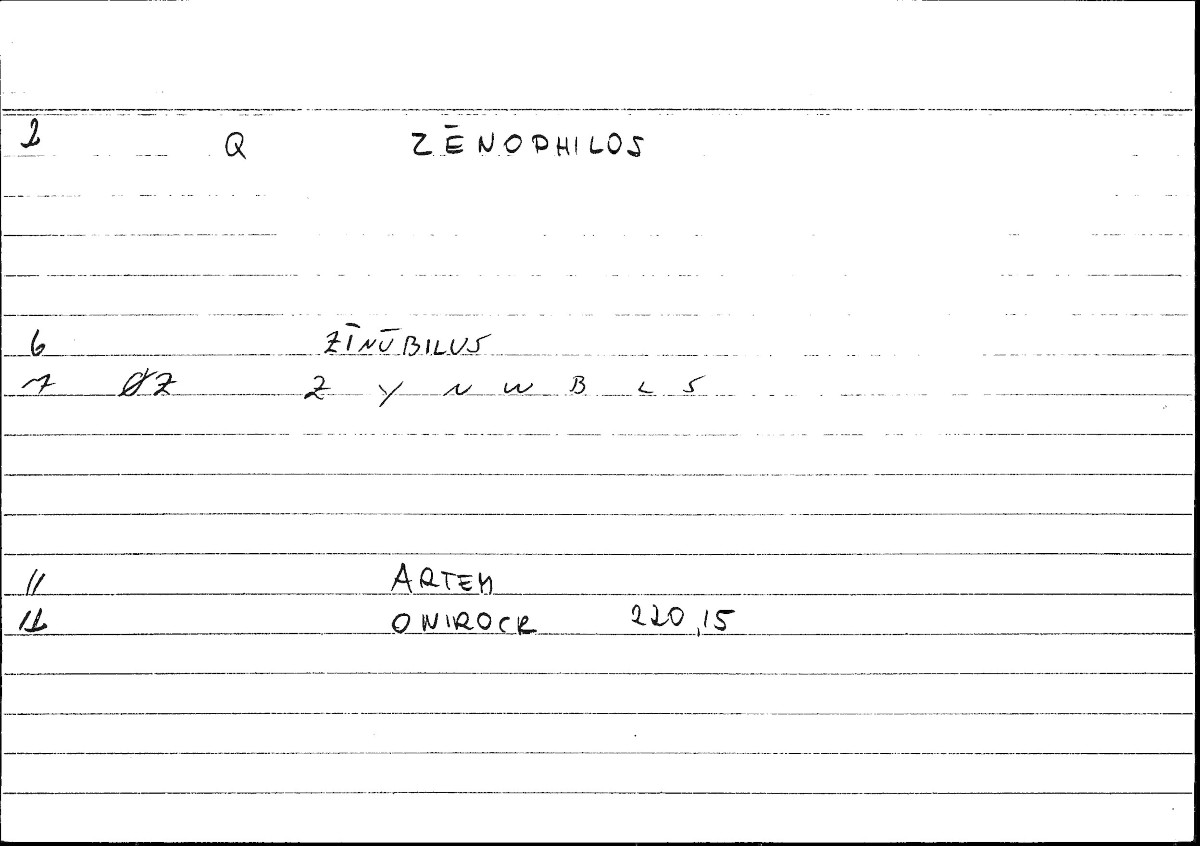 2 Q ZĒNOPHILOS
6 ZĪNŪBILUS
7 ØZ Z Y N W B L S
11 ARTEM
12 ONIROCR 220,15